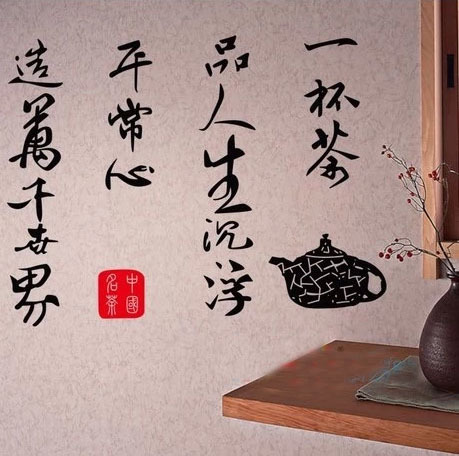 一杯茶
品人生沉浮
平常心
造萬千世界
中國
名茶